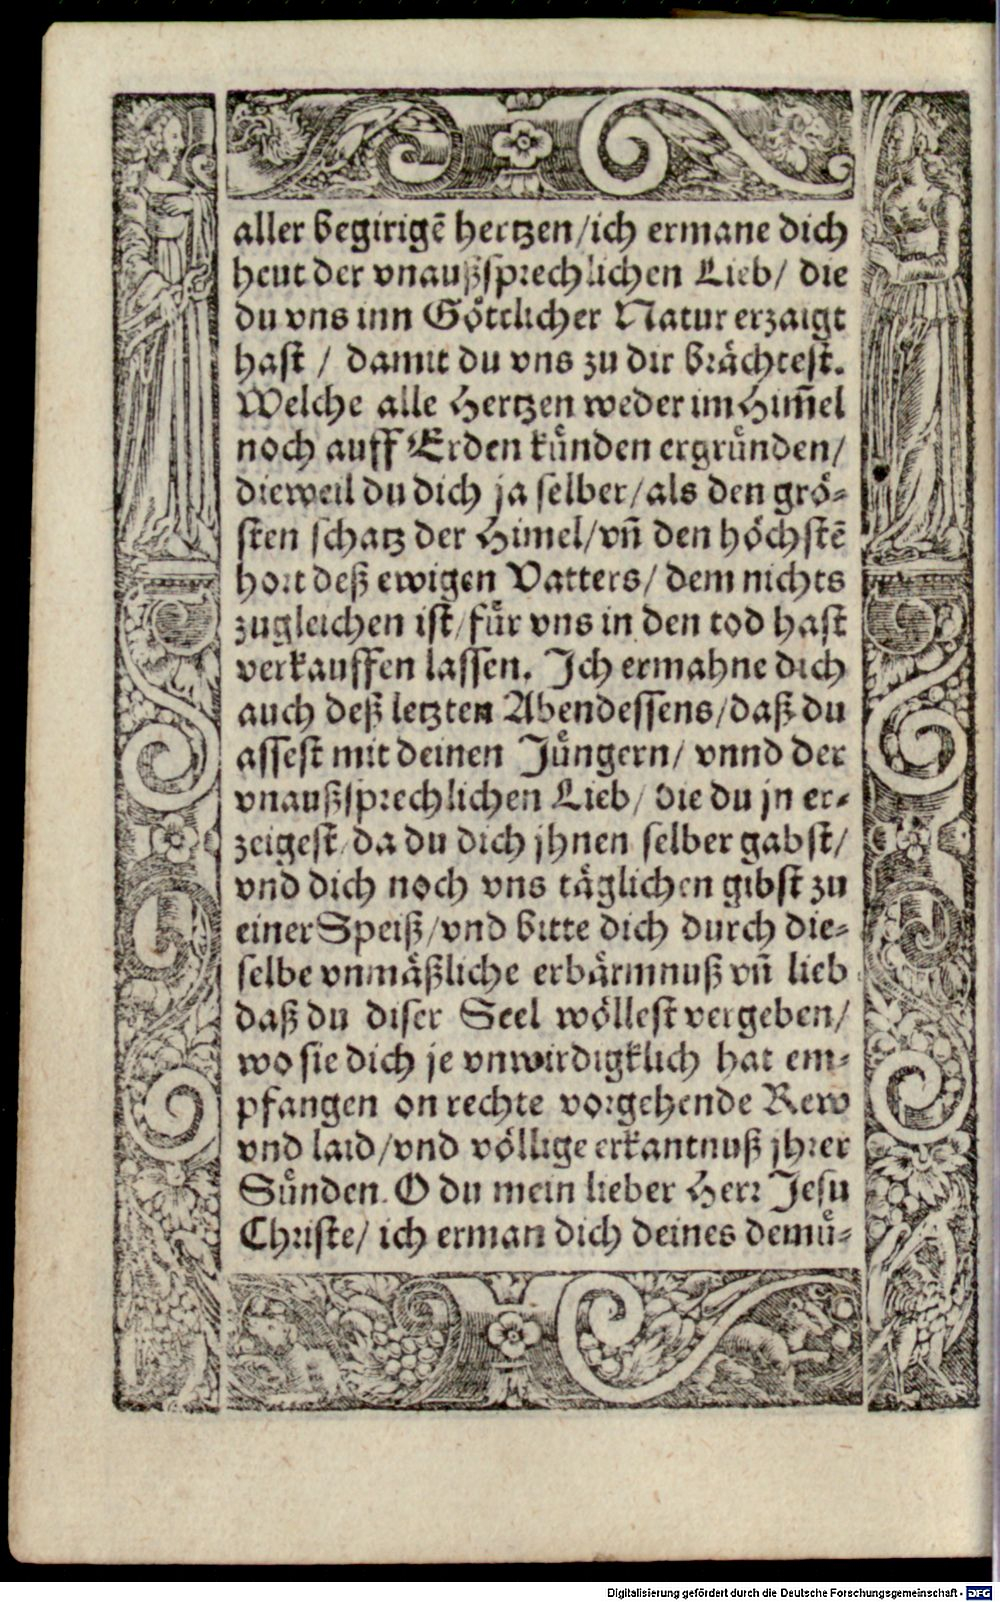 aller begirigē hertzen/ich ermane dich
heut der vnaußsprechlichen Lieb/ die
du vns inn Göttlicher Natur erzaigt
hast / damit du vns zu dir brächtest.
Welche alle Hertzen weder im Him̄el
noch auff Erden kůnden ergrůnden/
dieweil du dich ja selber/als den grö-
sten schatz der Himel/vn̄ den höchstē
hort deß ewigen Vatters/ dem nichts
zugleichen ist/fůr vns in den tod hast
verkauffen lassen. Ich ermahne dich
auch deß letzten Abendessens/daß du
assest mit deinen Jůngern/ vnnd der
vnaußsprechlichen Lieb/ die du jn er-
zeigest/da du dich jhnen selber gabst/
vnd dich noch vns täglichen gibst zu
einer Speiß/vnd bitte dich durch die-
selbe vnmäßliche erbärmnuß vn̄ lieb
daß du diser Seel wöllest vergeben/
wo sie dich je vnwirdigklich hat em-
pfangen on rechte vorgehende Rew
vnd laid/vnd völlige erkantnuß jhrer
Sůnden. O du mein lieber Herr Jesu
Christe/ ich erman dich deines demů-
Digitalisierung gefördert durch die Deutsche Forschungsgemeinschaft - DFG